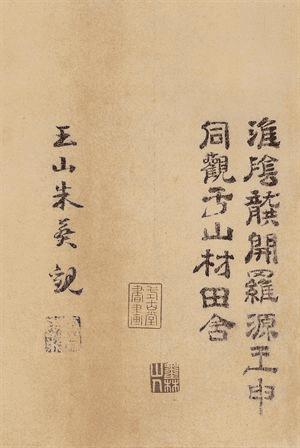 淮陰龔開羅源王申
同觀于山村田舍
式古堂
書畫
玉山朱英觀